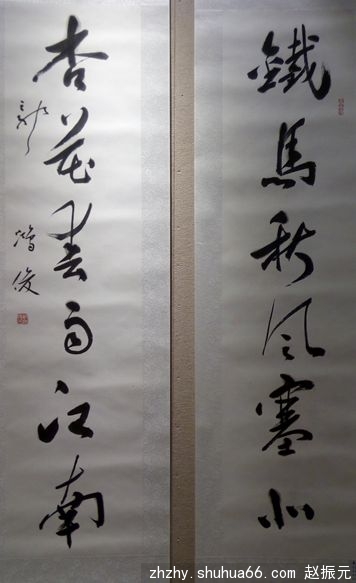 鐵馬秋風塞北
杏花春雨江南
鴻俊
zhzhy.shuhua66.com 赵振元